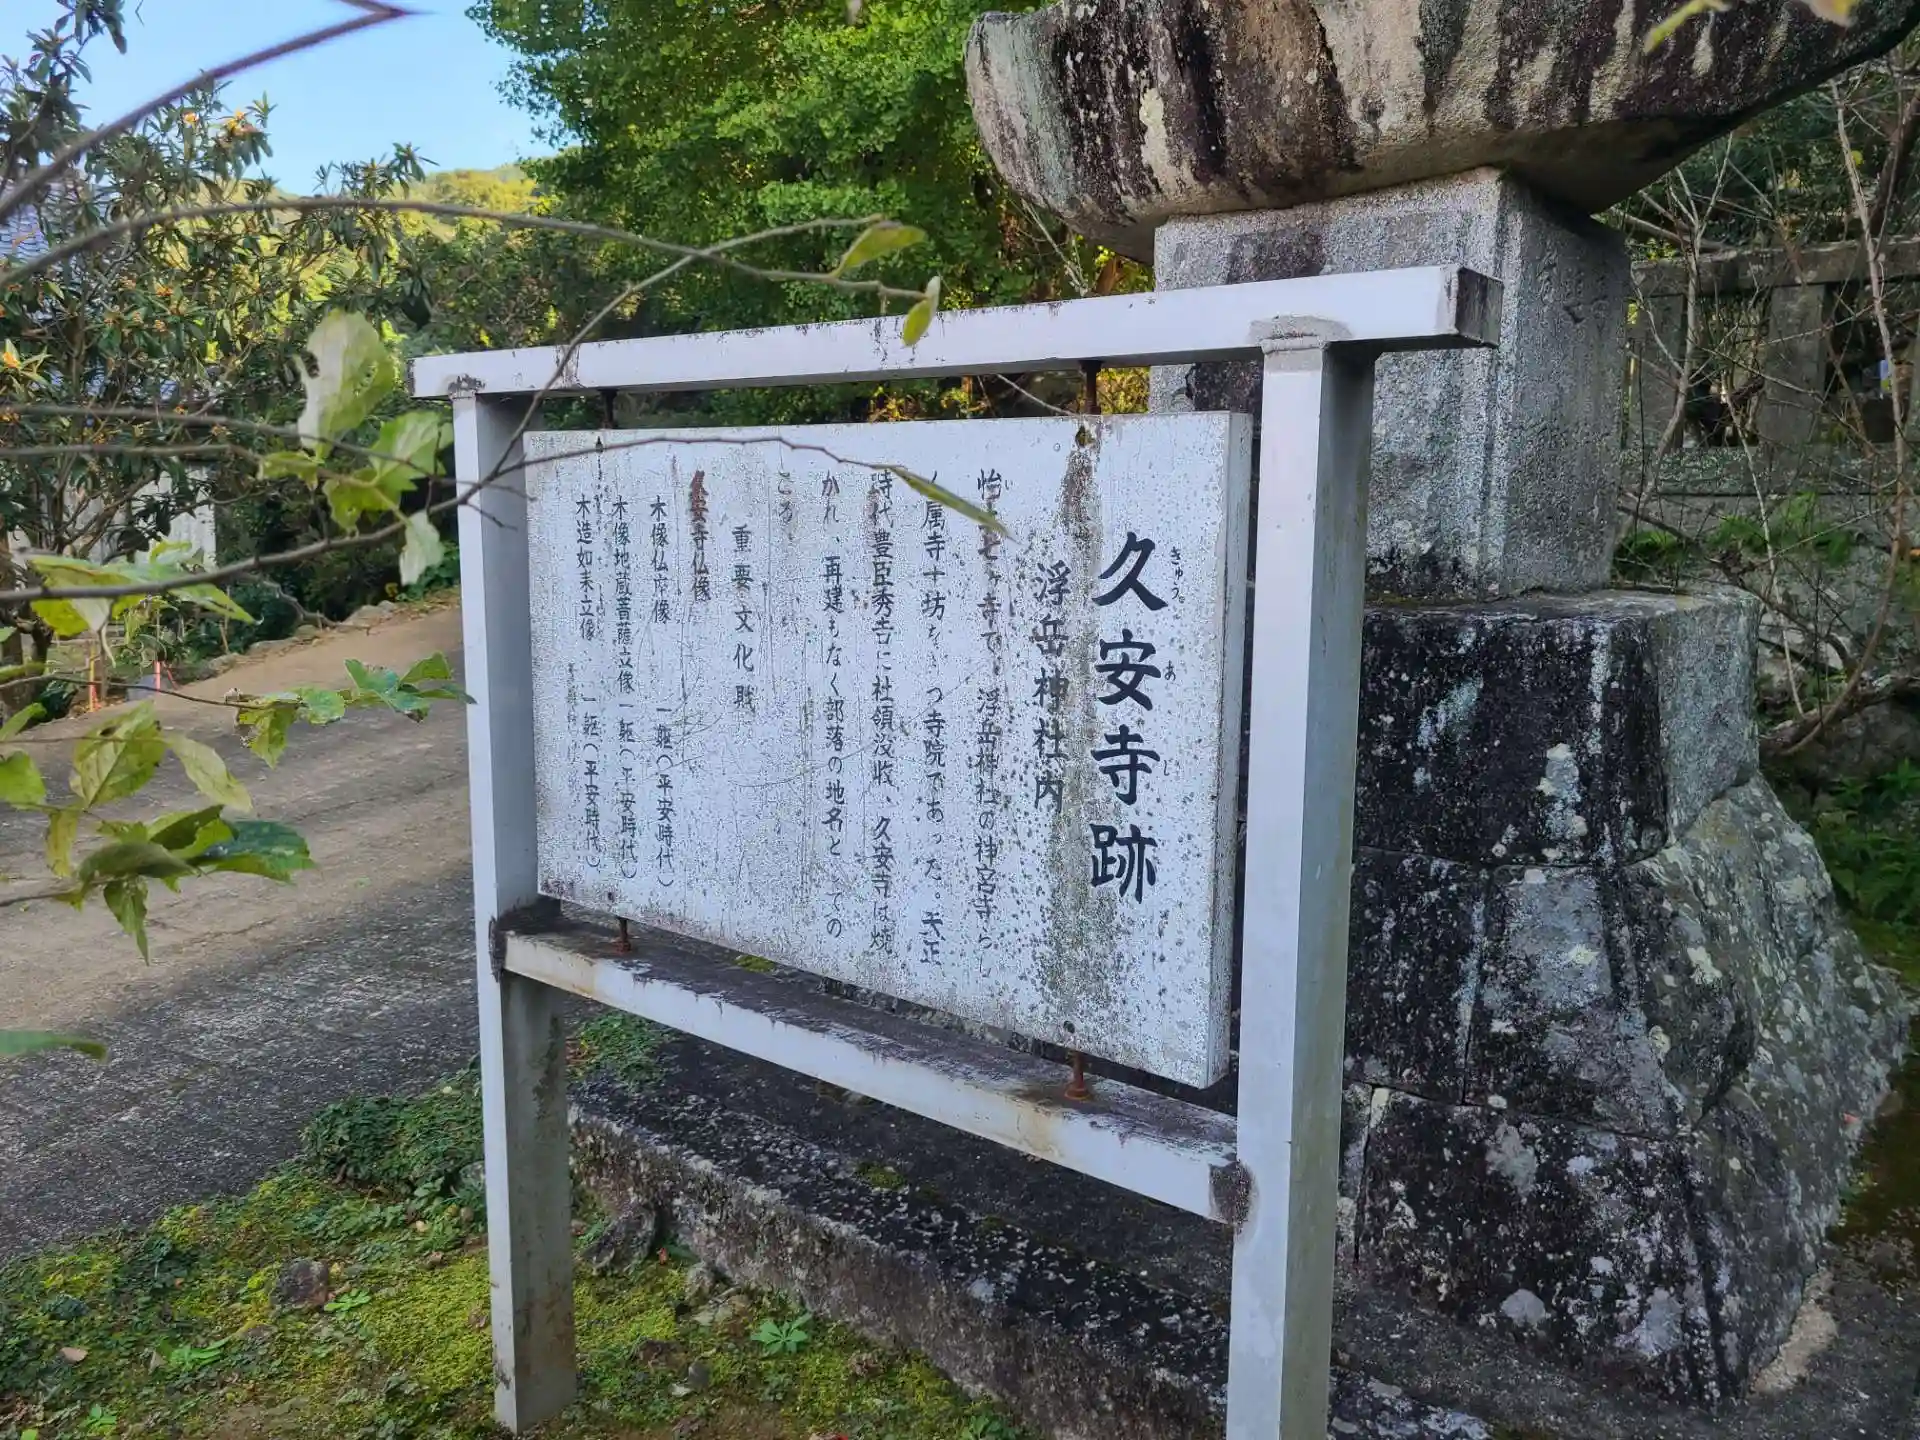 久安寺跡
きゅう あ じ
浮岳神社内
怡土七ヶ寺で、浮岳神社の神宮寺
属寺十坊をもつ寺院であった。天正
時代豊臣秀吉に社領没収、久安寺は焼
かれ、再建もなく部落の地名としての
ころ
重要文化財
久安寺仏像
木像仏座像 一躯(平安時代)
木像地蔵菩薩立像 一躯(平安時代)
木造如来立像 一躯(平安時代)